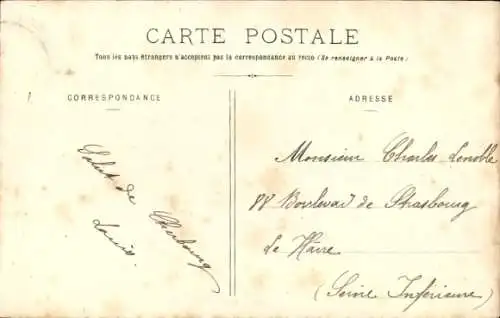 CARTE POSTALE
Tous les pays étrangers n'acceptent pas la correspondance au recto (Se renseigner à la Poste)
CORRESPONDANCE
Salut de
Cherbourg
Louis.
ADRESSE
Monsieur Charles Lenoble
88 Boulevard de Strasbourg
Le Hâvre
(Seine Inférieure)